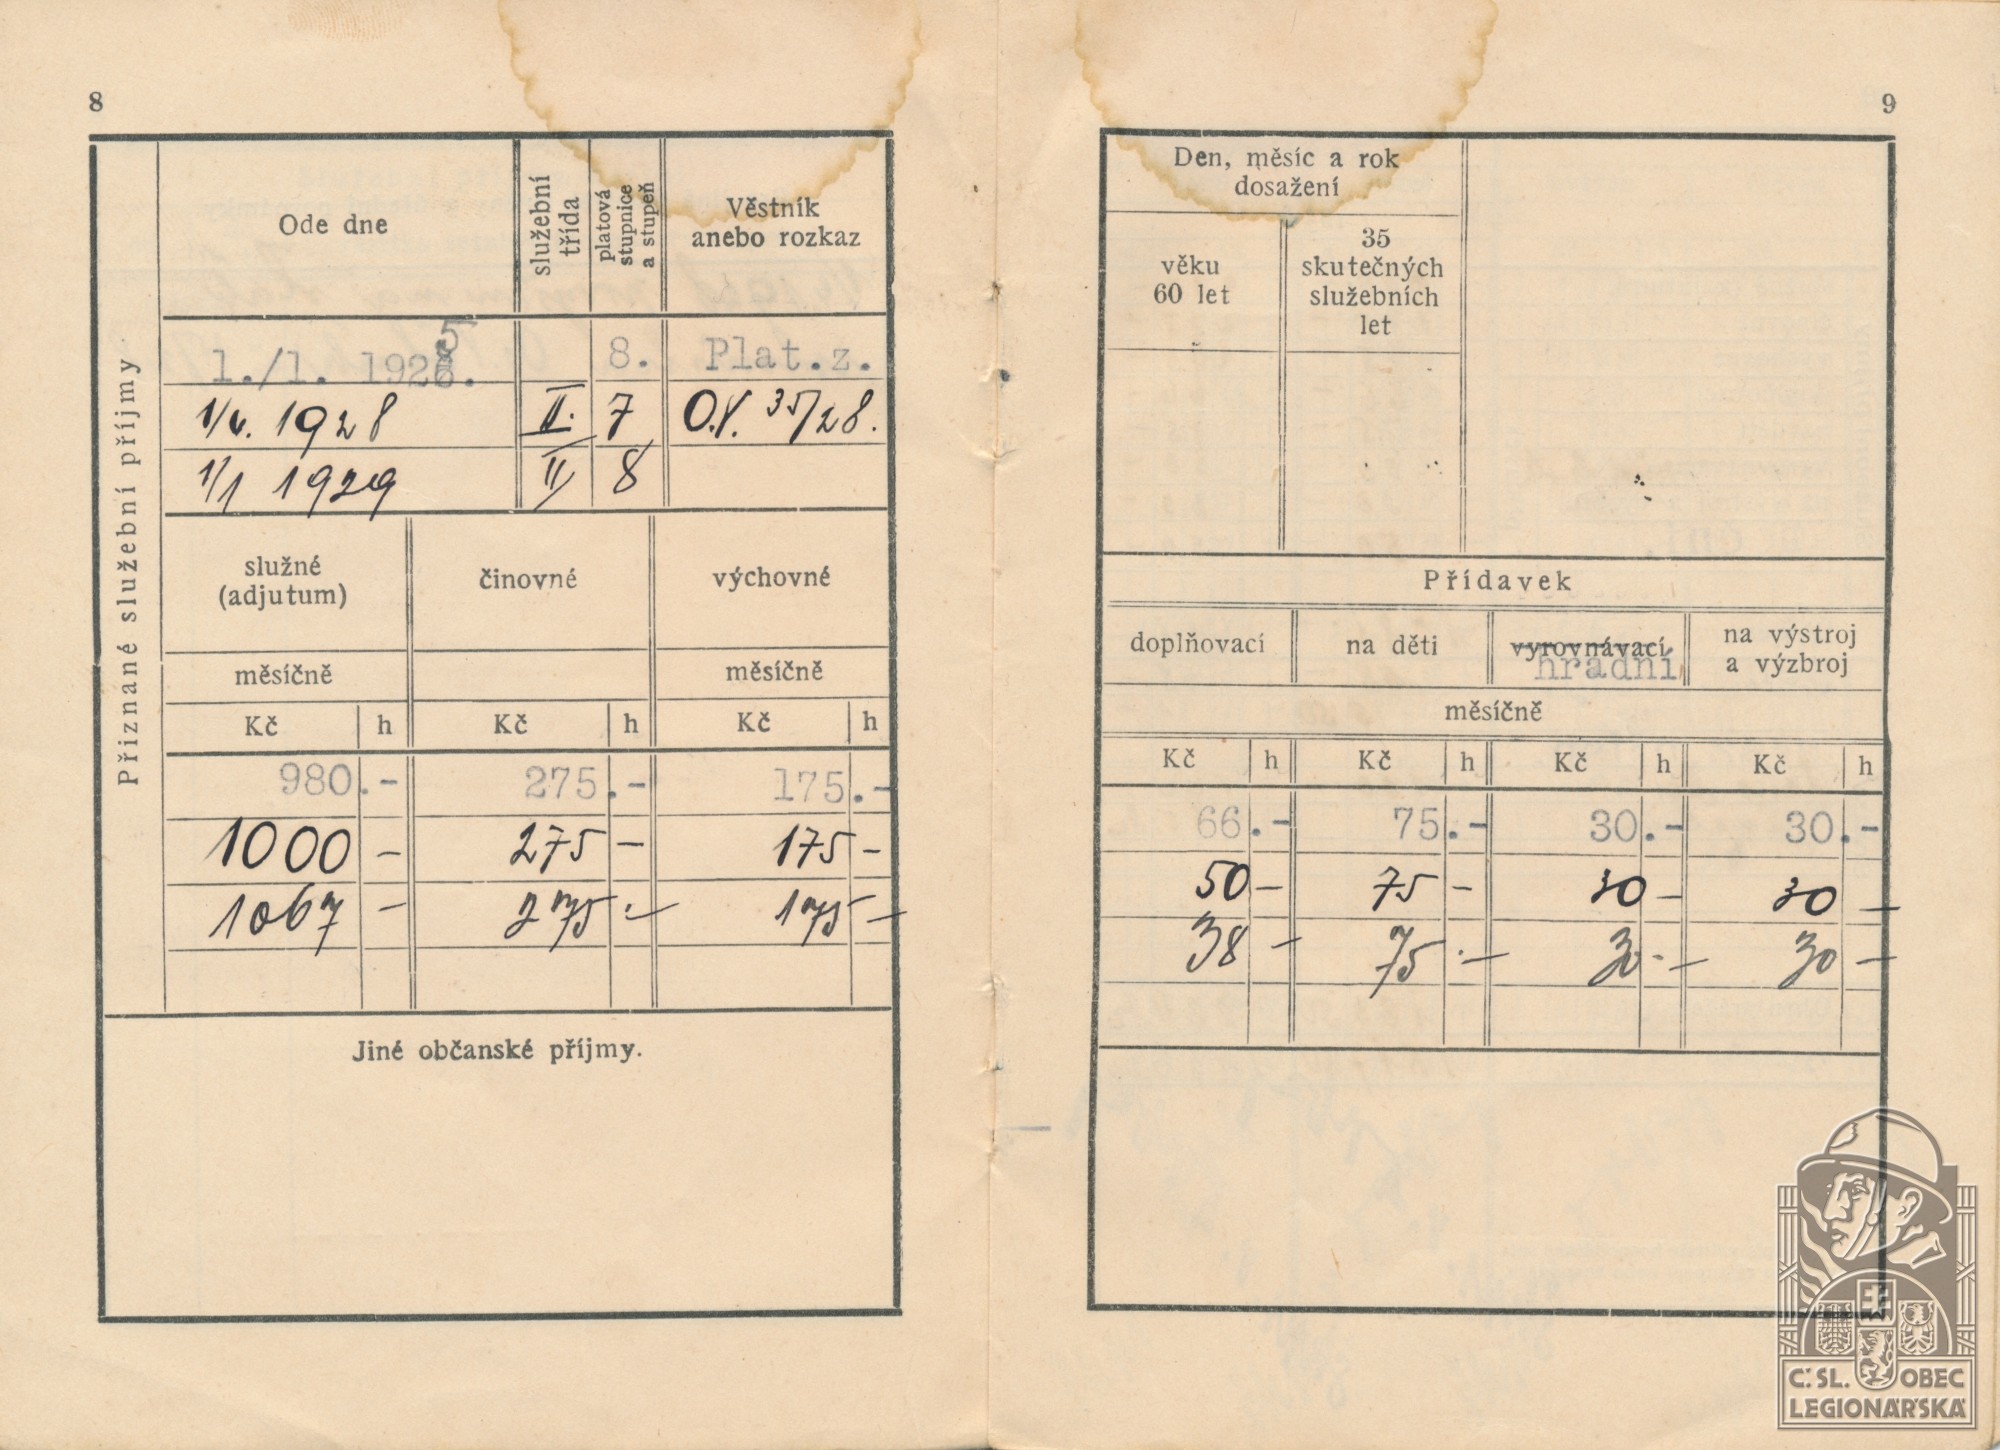 8
Přiznané služební příjmy
Ode dne
služební třída
platová stupnice a stupeň
Věstník
anebo rozkaz
1./1. 1925. 8. Plat.z.
1928 II. 7 35/28.
1/1 1929 II 8
služné
(adjutum)
činovné
výchovné
měsíčně měsíčně
Kč h Kč h Kč h
980.- 275.- 175.-
1000 - 275 - 175 -
1067 - 275.- 175 -
Jiné občanské příjmy.
9
Den, měsíc a rok
dosažení
věku
60 let
35
skutečných
služebních
let
Přídavek
doplňovací
na děti
vyrovnávací
hradní
na výstroj
a výzbroj
měsíčně
Kč h Kč h Kč h Kč h
66.- 75.- 30.- 30.-
50 - 75 - 30 - 30 -
38 - 75.- 30.- 30 -
Č.SL. OBEC
LEGIONÁŘSKÁ